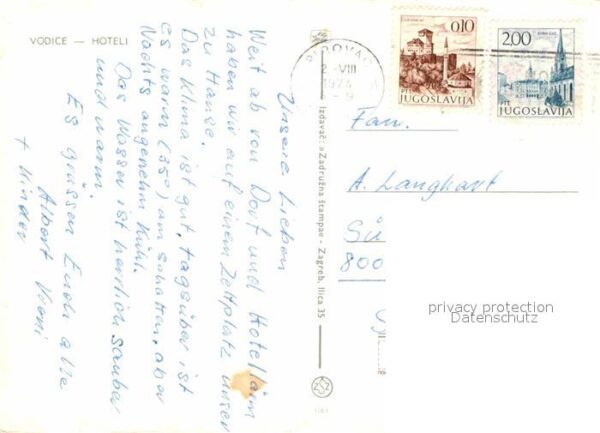 VODICE — HOTELI
Unsere Lieben
Weit ab von Dorf und Hotellärm
haben wir auf einem Zeltplatz unser
zu Hause.
Das Klima ist gut, tagsüber ist
es warm (35°) am schatten, aber
Nachts angenehm kühl.
Das Wasser ist herrlich sauber
und warm.
Es grüssen Euch alle
Albert Vroni
+ Kinder
Izdavač: »Zadružna štampa« - Zagreb, Ilica 35
PIROVAC
2-VIII
0,10
PTT JUGOSLAVIJA
2,00
PTT JUGOSLAVIJA
Fam.
A. Langhart
800
privacy protection
Datenschutz